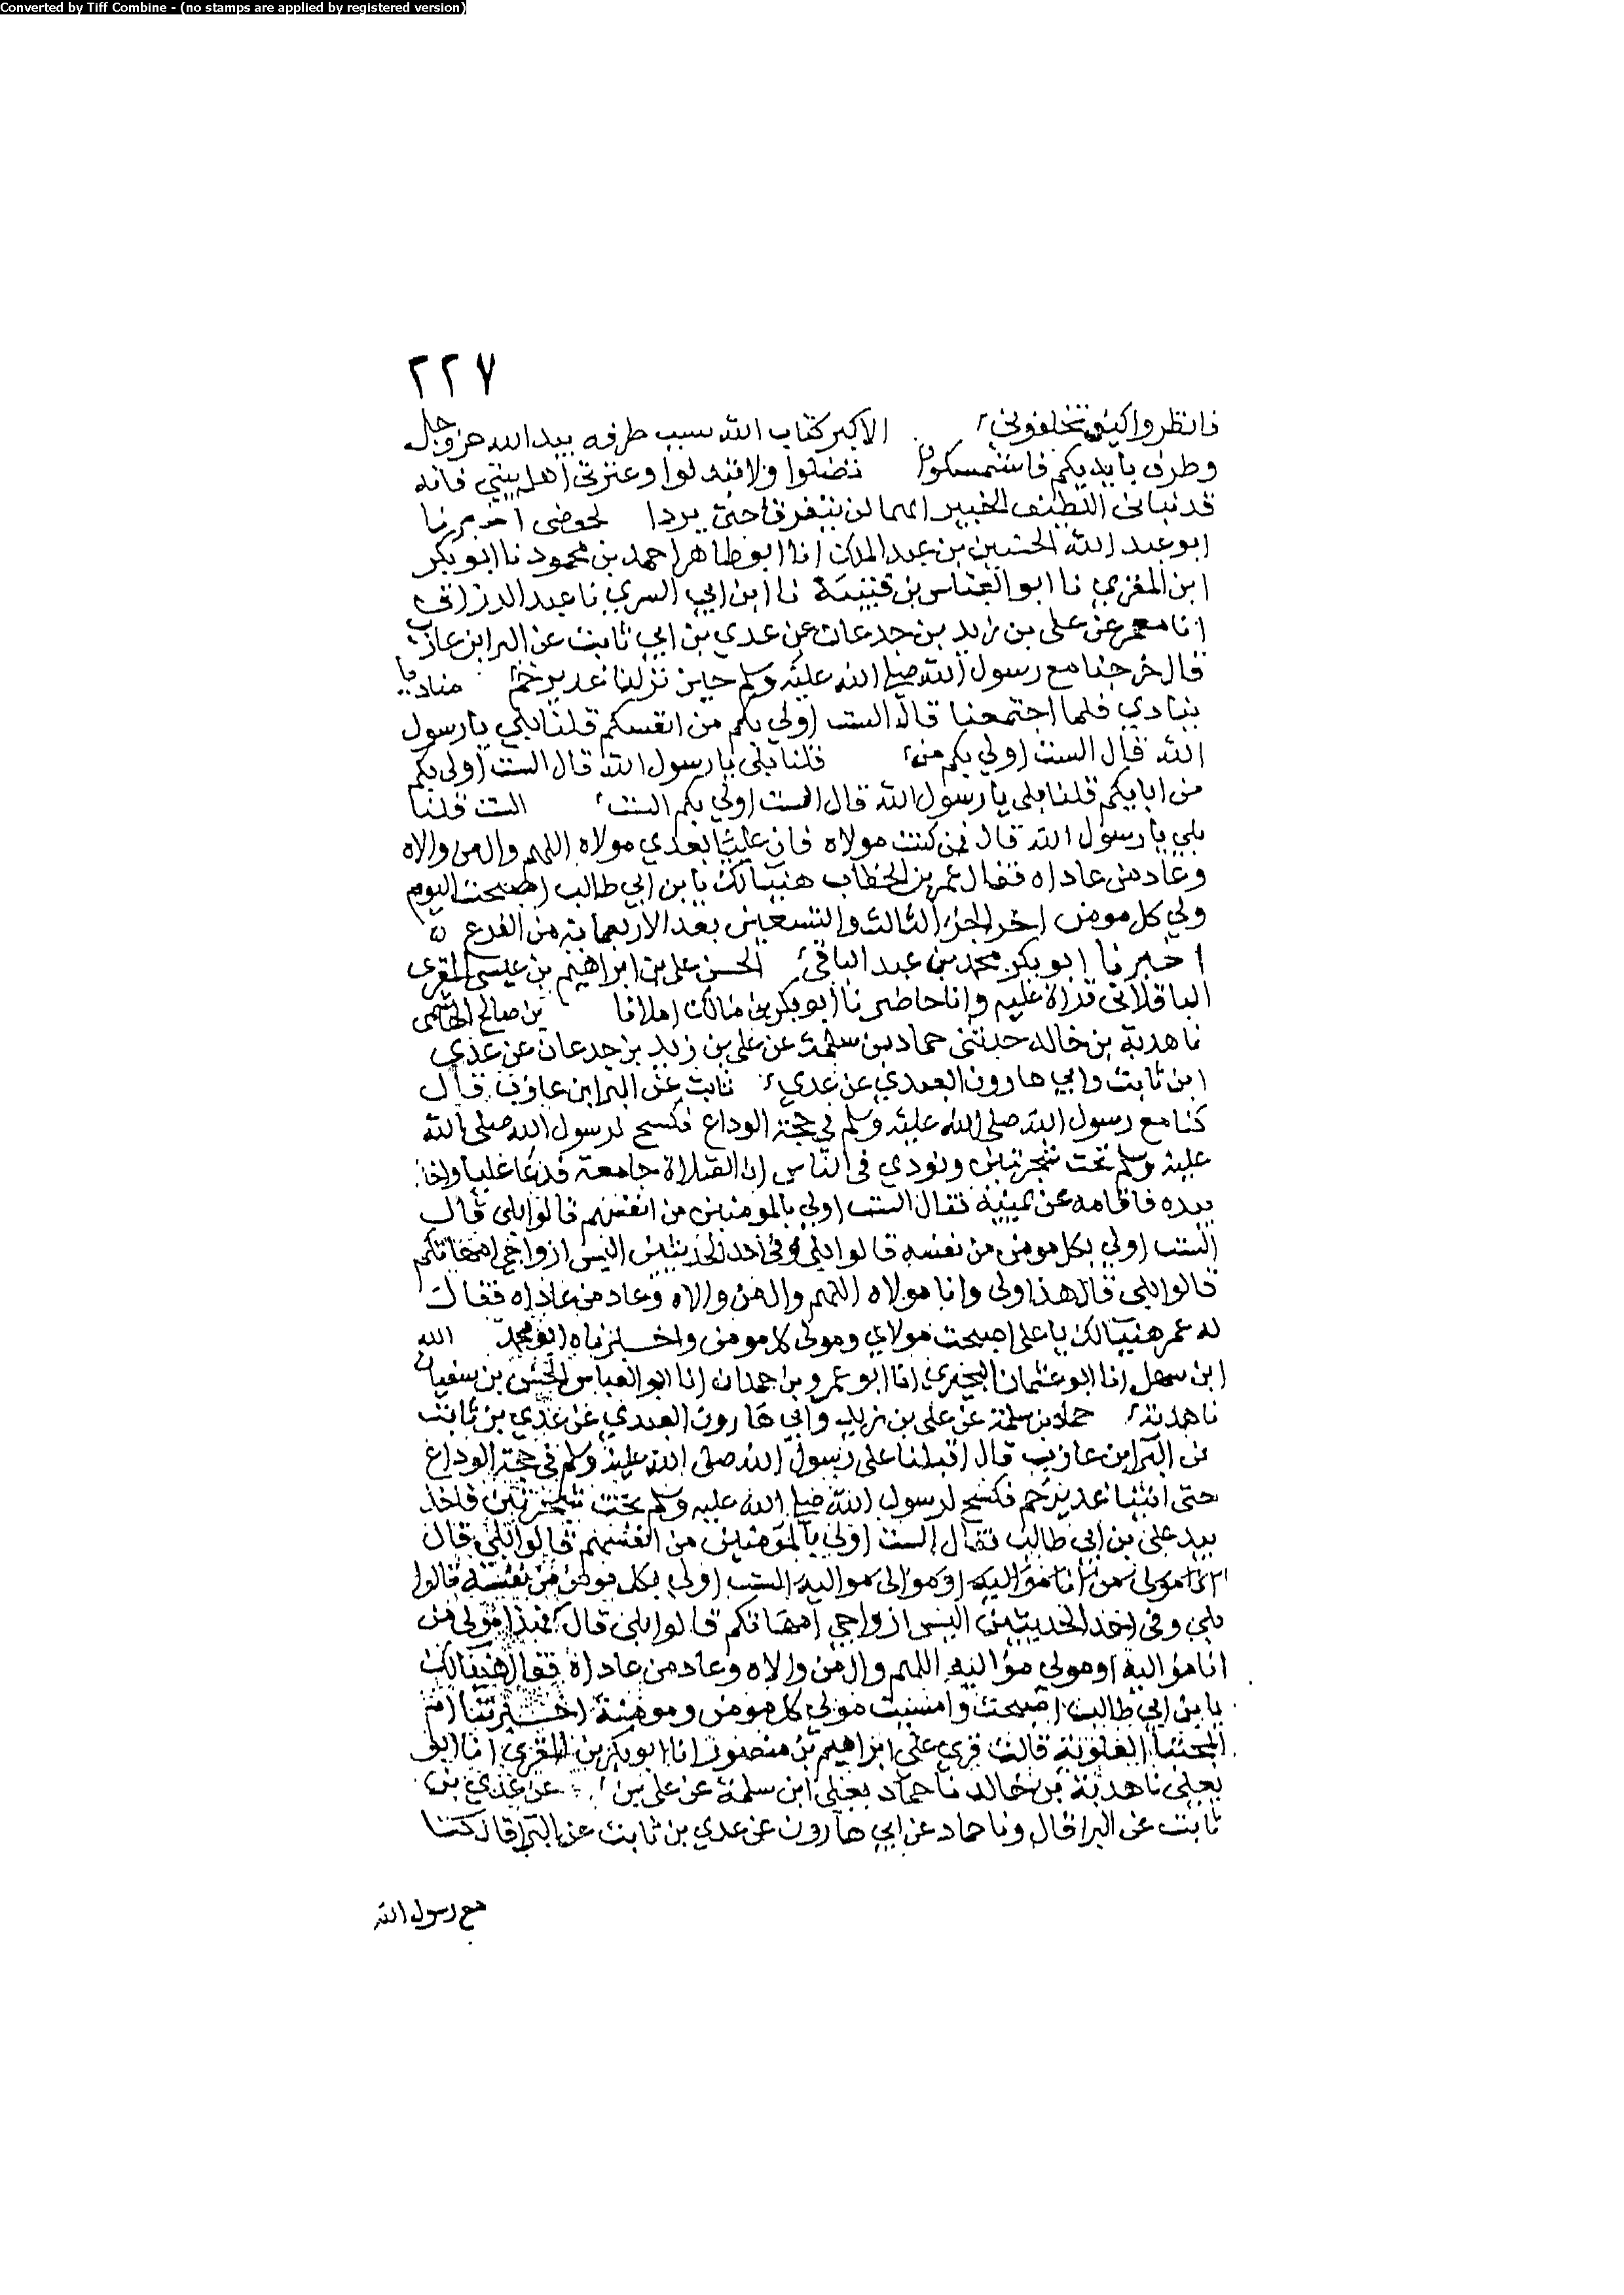 Converted by Tiff Combine - (no stamps are applied by registered version)
٢٢٧
فانظروا كيف تخلفوني الاكبر كتاب الله سبب طرفه بيد الله عز وجل
وطرف بايديكم فاستمسكوا تضلوا ولا تبدلوا وعترتي اهل بيتي فانه
قد نباني اللطيف الخبير انهما لن يتفرقا حتى يردا لحوضى اخبرنا
ابو عبد الله الحسين بن عبد الملك انا ابو طاهر احمد بن محمود نا ابو بكر
ابن المقري نا ابو العباس بن قتيبة نا ابن ابي السري نا عبد الرزاق
انا معمر عن على بن زيد بن جدعان عن عدي بن ابي ثابت عن البرا بن عازب
قال خرجنا مع رسول الله صلى الله عليه وسلم حين نزلنا غدير خم مناديا
ينادي فلما اجتمعنا قال الست اولي بكم من انفسكم قلنا بلي يا رسول
الله قال الست اولي بكم من قلنا بلى يا رسول الله قال الست اولى بكم
من ابايكم قلنا بلى يا رسول الله قال الست اولي بكم الست الست قلنا
بلي يا رسول الله قال فمن كنت مولاه فان عليا بعدي مولاه اللهم وال من والاه
وعاد من عاداه فقال عمر بن الخطاب هنيا لك يا بن ابي طالب اصبحت اليوم
ولي كل مومن اخر الجزء الثالث والتسعين بعد الاربعماية من الفرع
اخبرنا ابو بكر محمد بن عبد الباقي الحسن على بن ابراهيم بن عيسى المقرى
الباقلاني قراة عليه وانا حاضر نا ابو بكر بن مالك املا نا بن صالح الهاشمى
نا هدبة بن خالد حدثني حماد بن سلمة عن على بن زيد بن جدعان عن عدي
ابن ثابت وابي هارون العبدي عن عدي ثابت عن البرا بن عازب قال
كنا مع رسول الله صلى الله عليه وسلم في حجة الوداع فكسح لرسول الله صلى الله
عليه وسلم تحت شجرتين ونودي فى الناس ان الصلاة جامعة فدعا عليا واخذ
بيده فاقامه عن يمينه فقال الست اولي بالمومنين من انفسهم قالوا بلى قال
الست اولي بكل مومن من نفسه قالوا بلى وفى احد الحديثين اليس ازواجي امهاتكم
قالوا بلى قال هذا ولى وانا مولاه اللهم وال من والاه وعاد من عاداه فقال
له عمر هنيا لك يا على اصبحت مولاي ومولى كل مومن واخبرناه ابو محمد الله
ابن سهل انا ابو عثمان البحيري انا ابو عمرو بن حمدان انا ابو العباس الحسن بن سفيان
نا هدبة حماد بن سلمة عن على بن زيد وابي هارون العبدي عن عدي بن ثابت
عن البرا بن عازب قال اقبلنا على رسول الله صلى الله عليه وسلم في حجة الوداع
حتى اتينا غدير خم فكسح لرسول الله صلى الله عليه وسلم تحت شجرتين فاخذ
بيد على بن ابي طالب فقال الست اولي بالمومنين من انفسهم قالوا بلى قال
مولى من انا مواليه او موالى مواليه الست اولي بكل مومن من نفسه قالوا
بلي وفى احد الحديثين اليس ازواجي امهاتكم قالوا بلى قال فهذا مولى من
انا مواليه او مولي مواليه اللهم وال من والاه وعاد من عاداه فقال هنيا لك
يا بن ابي طالب اصبحت وامسيت مولي كل مومن ومومنة اخبرتنا ام
المجتبا العلوية قالت قري على ابراهيم بن منصور انا ابو بكر بن المقري انا ابو
يعلى نا هدبة بن خالد نا حماد يعنى ابن سلمة عن على بن عن عدي بن
ثابت عن البرا قال ونا حماد عن ابي هارون عن عدي بن ثابت عن البرا قال كنا
مع رسول الله